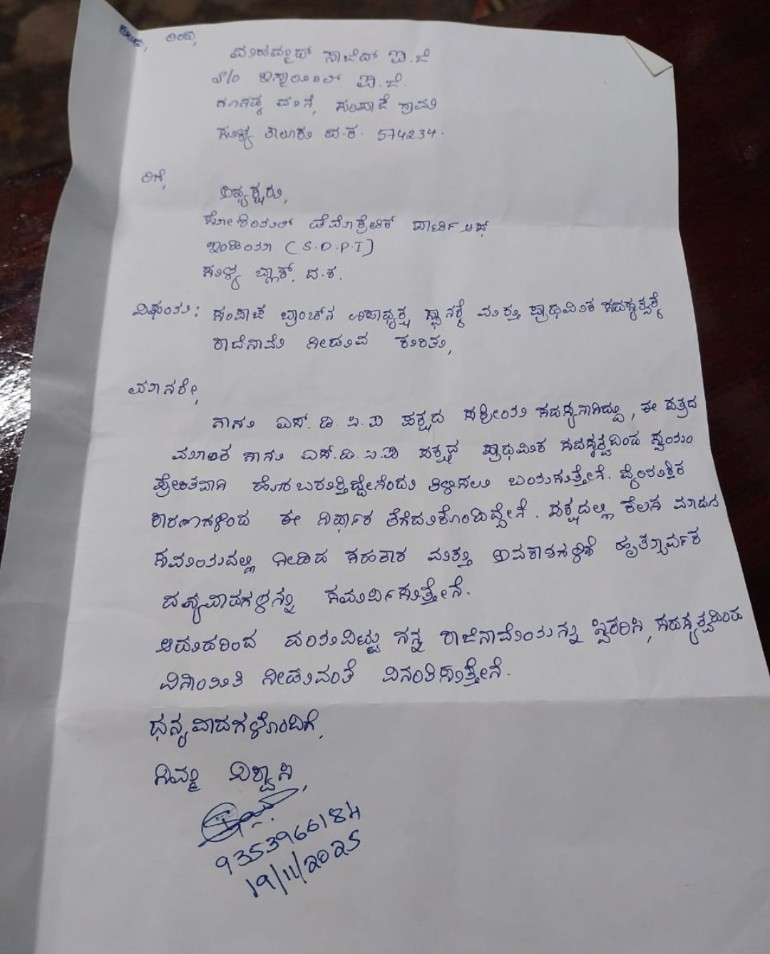 ಇಂದ,
ಮಹಮ್ಮದ್ ಸಾಜಿದ್ ಐ.ಜಿ
S/o ಇಸ್ಮಾಯಿಲ್ ಐ.ಜಿ.
ಮನೆ, ಸಂಪಾಜೆ ಗ್ರಾಮ
ಸುಳ್ಯ ತಾಲೂಕು ದ.ಕ. 574234.
ರಿಗೆ,
ಅಧ್ಯಕ್ಷರು,
ಸೋಶಿಯಲ್ ಡೆಮೊಕ್ರೆಟಿಕ್ ಪಾರ್ಟಿ ಆಫ್
ಇಂಡಿಯಾ (S.D.P.I)
ಸುಳ್ಯ ಬ್ಲಾಕ್. ದ.ಕ.
ವಿಷಯ: ಸಂಪಾಜೆ ಬ್ರಾಂಚ್‌ನ ಉಪಾಧ್ಯಕ್ಷ ಸ್ಥಾನಕ್ಕೆ ಮತ್ತು ಪ್ರಾಥಮಿಕ ಸದಸ್ಯತ್ವಕ್ಕೆ
ರಾಜಿನಾಮೆ ನೀಡುವ ಕುರಿತು,
ಮಾನರೇ,
ನಾನು ಎಸ್.ಡಿ.ಪಿ.ಐ ಪಕ್ಷದ ಸಕ್ರೀಯ ಸದಸ್ಯನಾಗಿದ್ದು, ಈ ಪತ್ರದ
ಮೂಲಕ ನಾನು ಎಸ್.ಡಿ.ಪಿ.ಐ ಪಕ್ಷದ ಪ್ರಾಥಮಿಕ ಸದಸ್ಯತ್ವದಿಂದ ಸ್ವಯಂ
ಪ್ರೇರಿತವಾಗಿ ಹೊರಬರುತ್ತಿದ್ದೇನೆಂದು ತಿಳಿಸಲು ಬಯಸುತ್ತೇನೆ. ವೈಯಕ್ತಿಕ
ಕಾರಣಗಳಿಂದ ಈ ನಿರ್ಧಾರ ತೆಗೆದುಕೊಂಡಿದ್ದೇನೆ. ಪಕ್ಷದಲ್ಲಿ ಕೆಲಸ ಮಾಡುವ
ಸಮಯದಲ್ಲಿ ನೀಡಿದ ಸಹಕಾರ ಮತ್ತು ಅವಕಾಶಗಳಿಗೆ ಹೃತ್ಪೂರ್ವಕ
ಧನ್ಯವಾದಗಳನ್ನು ಸಮರ್ಪಿಸುತ್ತೇನೆ.
ಆದುದರಿಂದ ದಯವಿಟ್ಟು ನನ್ನ ರಾಜಿನಾಮೆಯನ್ನು ಸ್ವೀಕರಿಸಿ, ಸದಸ್ಯತ್ವದಿಂದ
ವಿನಾಯಿತಿ ನೀಡುವಂತೆ ವಿನಂತಿಸುತ್ತೇನೆ.
ಧನ್ಯವಾದಗಳೊಂದಿಗೆ,
ನಿಮ್ಮ ವಿಶ್ವಾಸಿ,
9353966184
19/11/2025